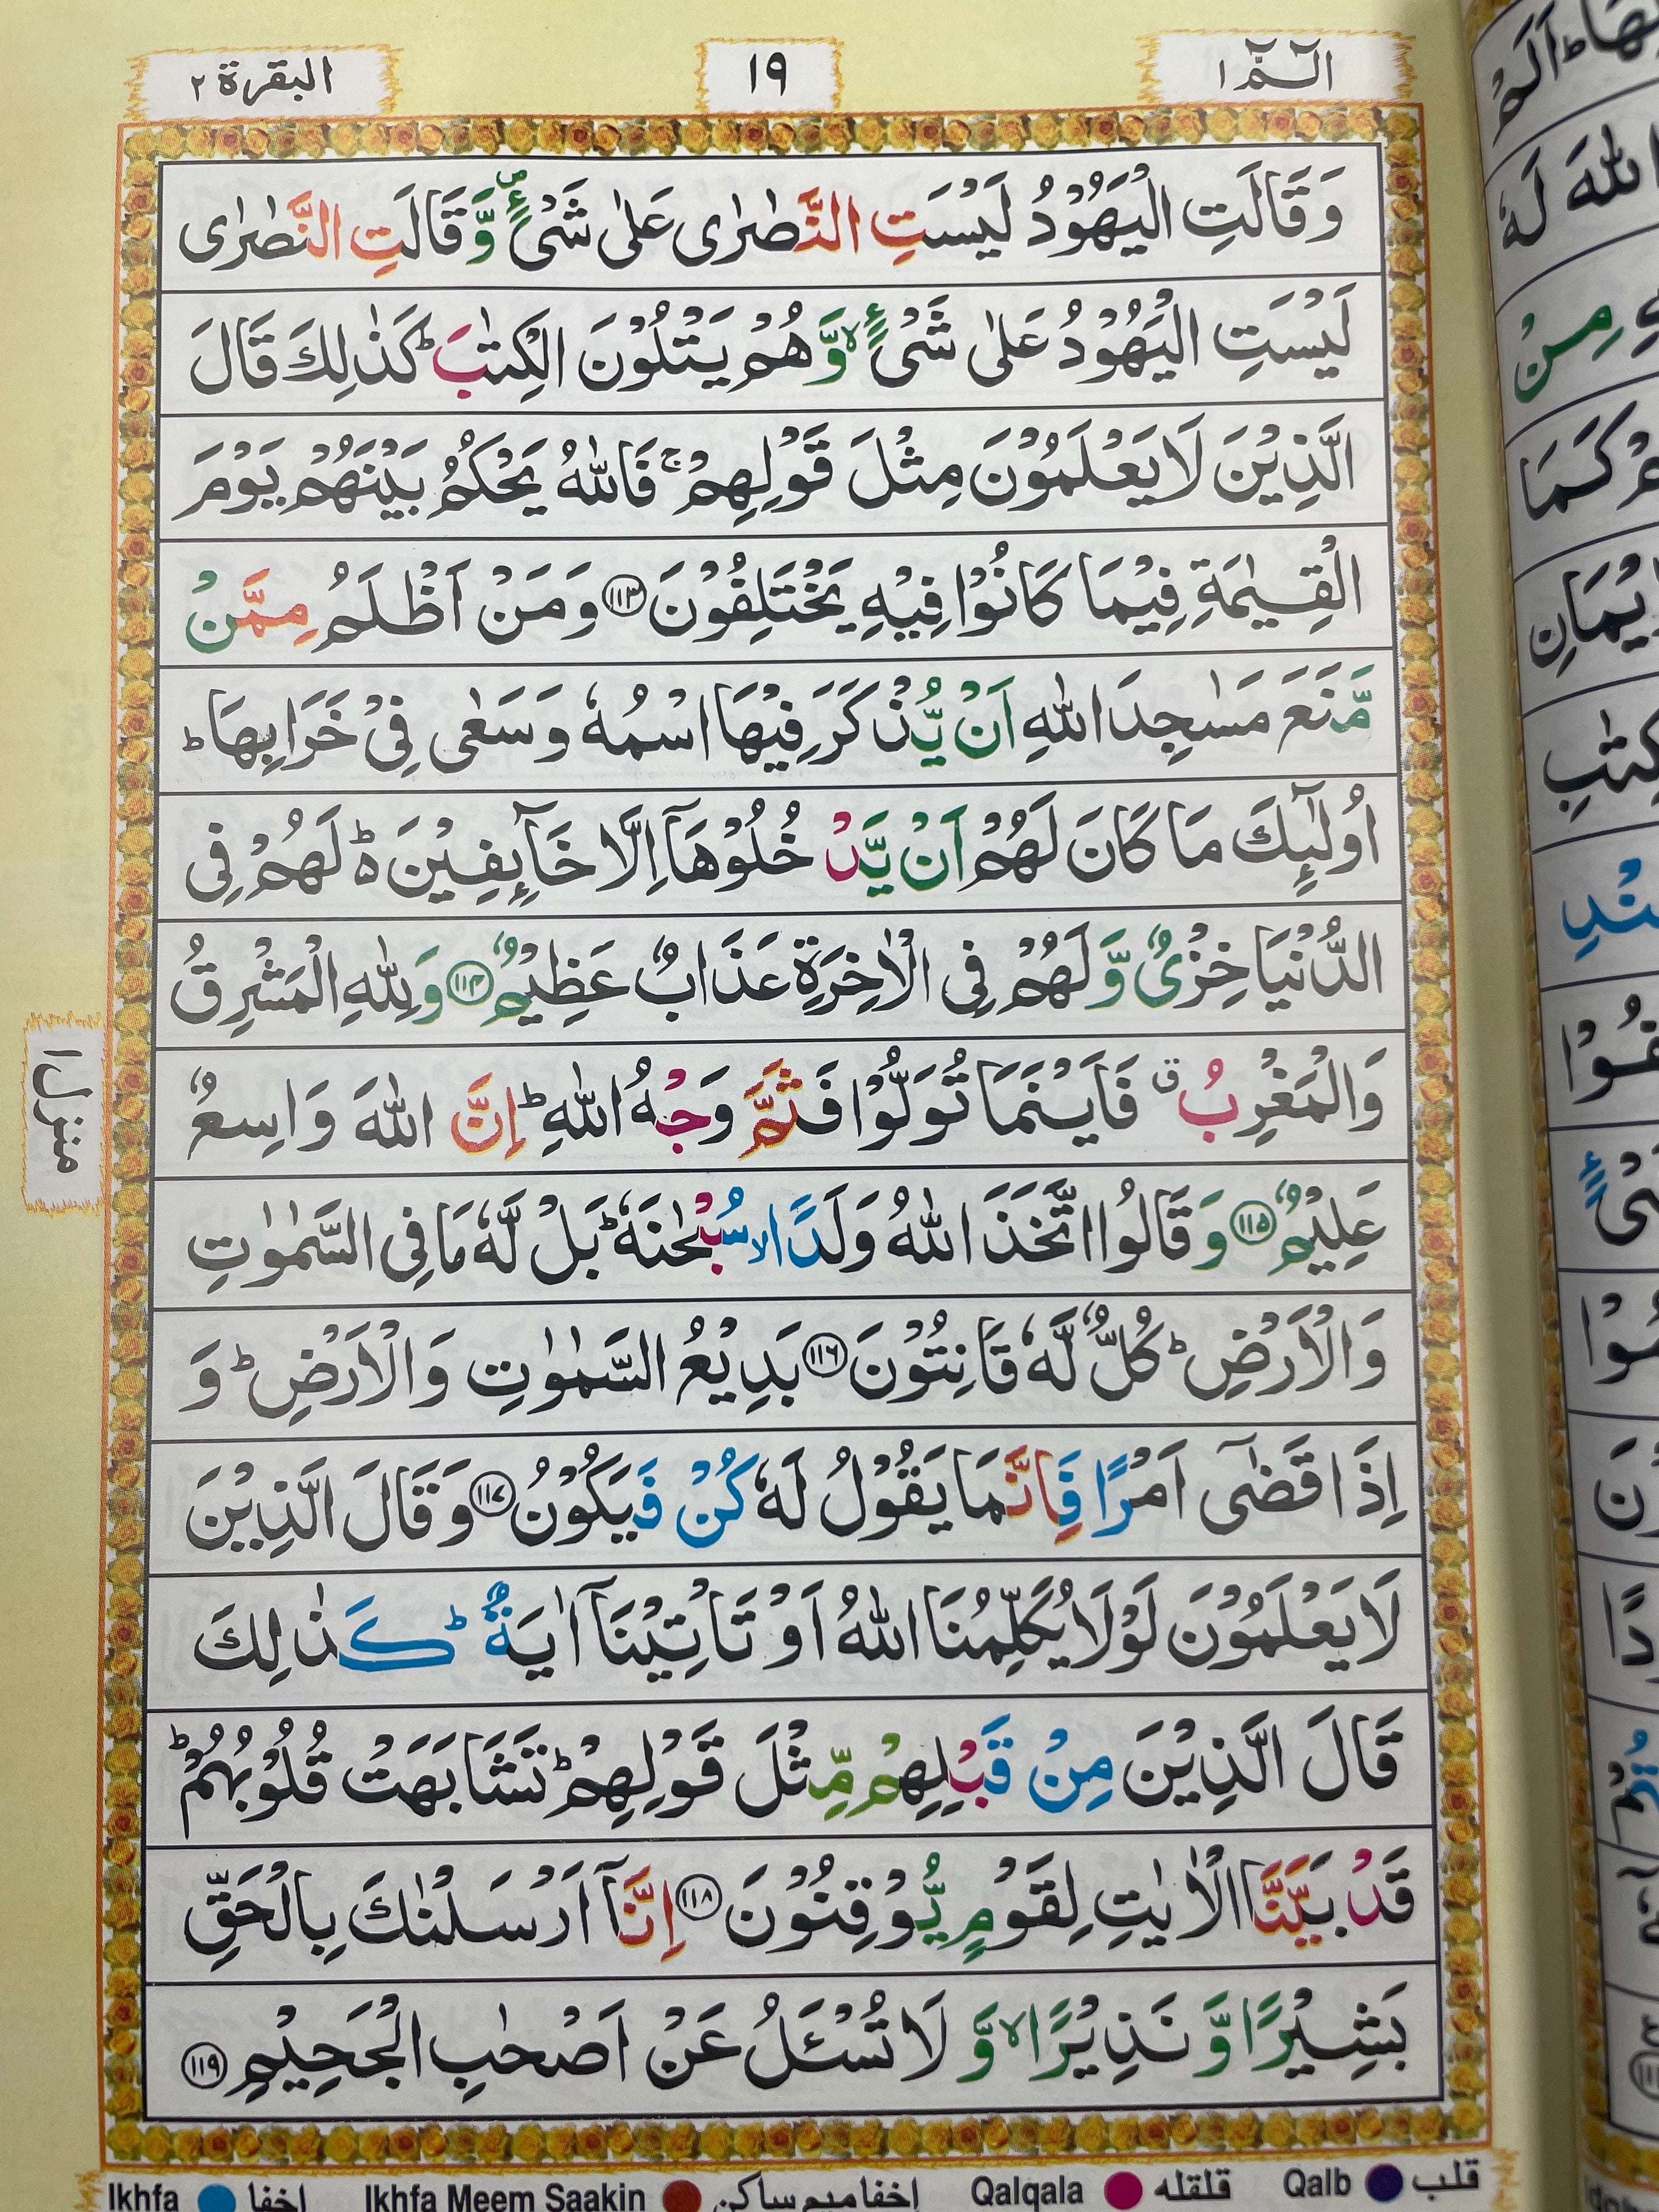 الٓـمّٓ ١
١٩
البقرة ٢
وَقَالَتِ الْيَهُوْدُ لَيْسَتِ النَّصٰرٰى عَلٰى شَىْءٍ ۪ وَّقَالَتِ النَّصٰرٰى
لَيْسَتِ الْيَهُوْدُ عَلٰى شَىْءٍ ۙ وَّهُمْ يَتْلُوْنَ الْكِتٰبَ ؕ كَذٰلِكَ قَالَ
الَّذِيْنَ لَا يَعْلَمُوْنَ مِثْلَ قَوْلِهِمْ ۚ فَاللّٰهُ يَحْكُمُ بَيْنَهُمْ يَوْمَ
الْقِيٰمَةِ فِيْمَا كَانُوْا فِيْهِ يَخْتَلِفُوْنَ ﴿۱۱۳﴾ وَمَنْ اَظْلَمُ مِمَّنْ
مَّنَعَ مَسٰجِدَ اللّٰهِ اَنْ يُّذْكَرَ فِيْهَا اسْمُهٗ وَسَعٰى فِىْ خَرَابِهَا ؕ
اُولٰٓئِكَ مَا كَانَ لَهُمْ اَنْ يَّدْخُلُوْهَاۤ اِلَّا خَآئِفِيْنَ ؕ۬ لَهُمْ فِى
الدُّنْيَا خِزْىٌ وَّلَهُمْ فِى الْاٰخِرَةِ عَذَابٌ عَظِيْمٌ ﴿۱۱۴﴾ وَلِلّٰهِ الْمَشْرِقُ
وَالْمَغْرِبُ ۗ فَاَيْنَمَا تُوَلُّوْا فَثَمَّ وَجْهُ اللّٰهِ ؕ اِنَّ اللّٰهَ وَاسِعٌ
عَلِيْمٌ ﴿۱۱۵﴾ وَقَالُوا اتَّخَذَ اللّٰهُ وَلَدًا ۙ سُبْحٰنَهٗ ؕ بَلْ لَّهٗ مَا فِى السَّمٰوٰتِ
وَالْاَرْضِ ؕ كُلٌّ لَّهٗ قَانِتُوْنَ ﴿۱۱۶﴾ بَدِيْعُ السَّمٰوٰتِ وَالْاَرْضِ ؕ وَ
اِذَا قَضٰٓى اَمْرًا فَاِنَّمَا يَقُوْلُ لَهٗ كُنْ فَيَكُوْنُ ﴿۱۱۷﴾ وَقَالَ الَّذِيْنَ
لَا يَعْلَمُوْنَ لَوْلَا يُكَلِّمُنَا اللّٰهُ اَوْ تَاْتِيْنَاۤ اٰيَةٌ ؕ كَذٰلِكَ
قَالَ الَّذِيْنَ مِنْ قَبْلِهِمْ مِّثْلَ قَوْلِهِمْ ؕ تَشَابَهَتْ قُلُوْبُهُمْ ؕ
قَدْ بَيَّنَّا الْاٰيٰتِ لِقَوْمٍ يُّوْقِنُوْنَ ﴿۱۱۸﴾ اِنَّاۤ اَرْسَلْنٰكَ بِالْحَقِّ
بَشِيْرًا وَّنَذِيْرًا ۙ وَّلَا تُسْـَٔلُ عَنْ اَصْحٰبِ الْجَحِيْمِ ﴿۱۱۹﴾
منزل ١
Ikhfa اخفا Ikhfa Meem Saakin إخفا ميم ساكن Qalqala قلقله Qalb قلب